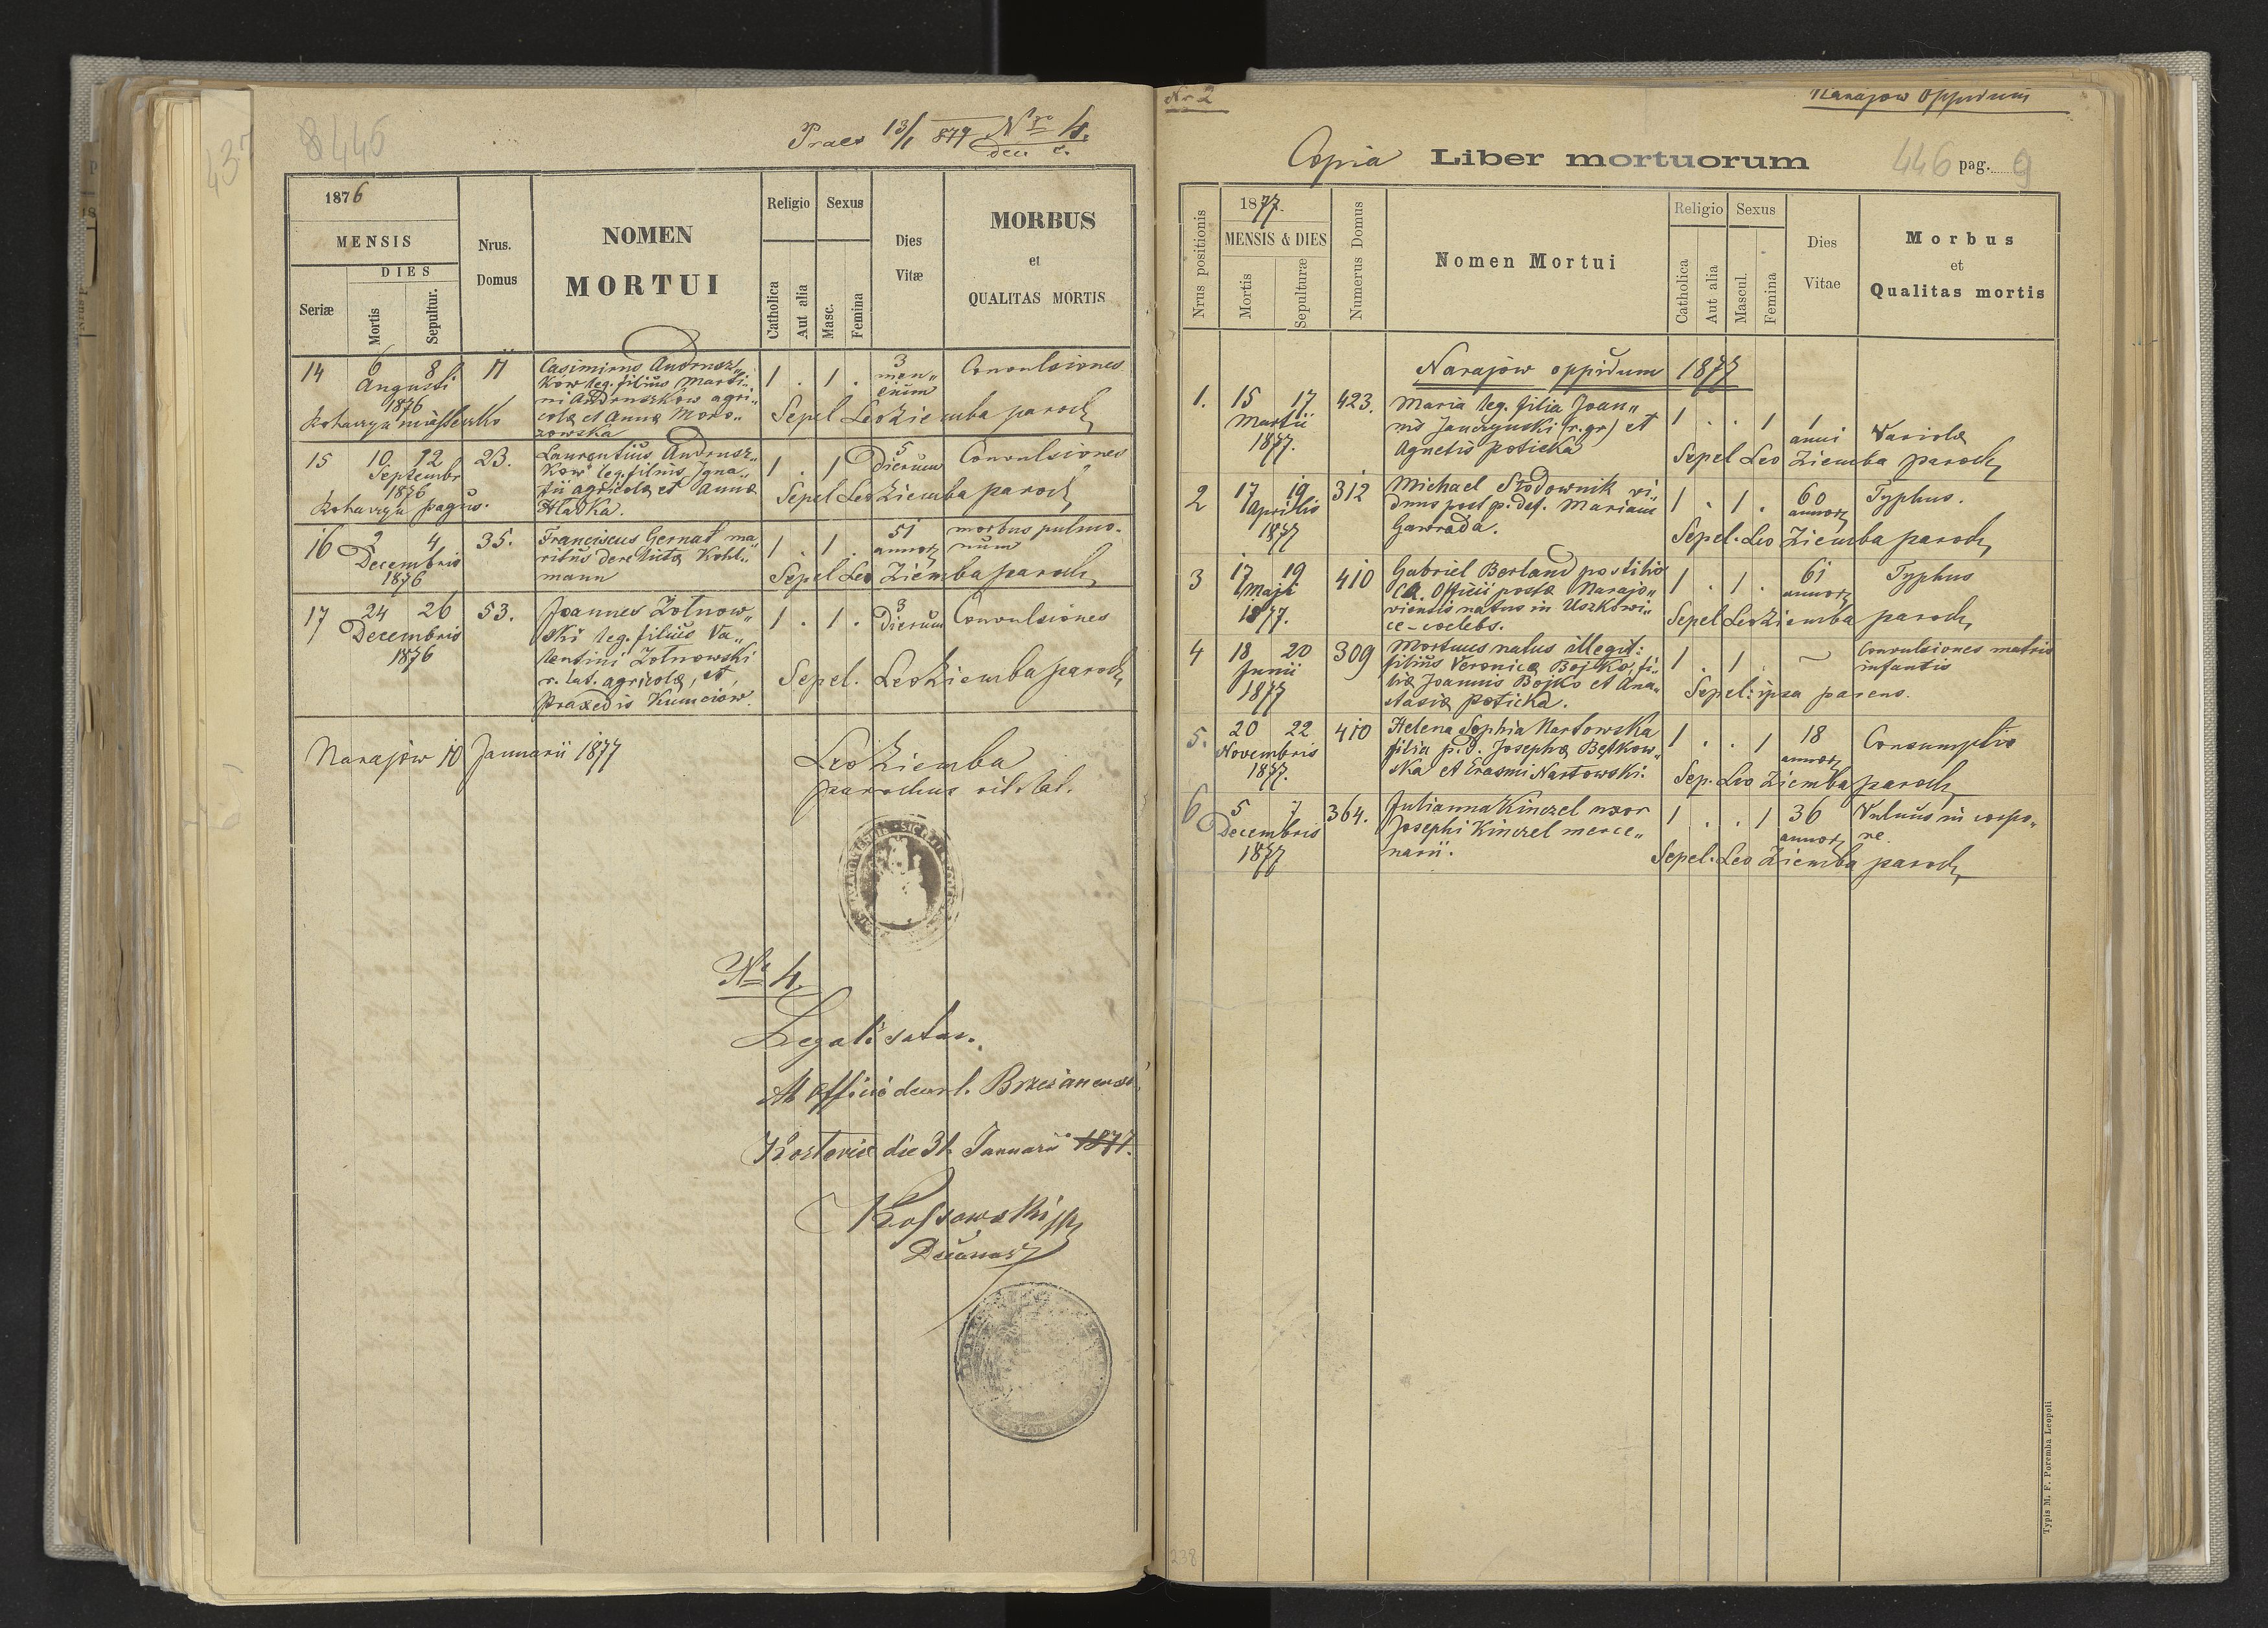 437
8445
Praes 13/1 879 Nro 4.
dec. c.
1876
MENSIS
DIES
Seriæ
Mortis
Sepultur.
Nrus.
Domus
NOMEN
MORTUI
Religio
Catholica
Aut alia
Sexus
Masc.
Femina
Dies
Vitæ
MORBUS
et
QUALITAS MORTIS
14 6 8 11 Casimirus Andrusz„ 1 . 1 . 3 Convulsiones
Augusti ków leg. filius Marti„ men„
1876 ni Andruszkow agri„ sium
miasteczko colæ et Anna Moro„ Sepel Leo Ziemba paroch
zowska
15 10 12 23. Laurentius Andrusz„ 1 . 1 5 Convulsiones
Septembr ków leg. filius Igna„ Dierum
1876 tii agricolæ et Anna Sepel Leo Ziemba paroch
pagus. Hladka.
16 2 4 35. Franciscus Gernat ma„ 1 . 1 . 51 morbus pulmo-
Decembris ritus derelicta Kohl„ annor num
1876 mann Sepel Leo Ziemba paroch
17 24 26 53. Joannes Zotnow„ 1 . 1 . 3 Convulsiones
Decembris ski leg. filius Va„ Dierum
1876 lentini Zotnowski
r. lat. agricolæ, et Sepel. Leo Ziemba paroch
Praxedis Kumciow.
Narajów 10 Januarii 1877 Leo Ziemba
parochus rit. lat.
Nr 4.
Legalisatur.
Ab Officio decan l. Brzezanensi
die 31. Januarii 1877.
Kossowski
Decanus
Nr 2
Narajow Oppidum
Copia Liber mortuorum 446 pag. 9
Nrus positionis
1877.
MENSIS & DIES
Mortis
Sepulturæ
Numerus Domus
Nomen Mortui
Religio
Catholica
Aut alia
Sexus
Mascul.
Femina
Dies
Vitae
Morbus
et
Qualitas mortis
Narajów oppidum 1877
1. 15 17 423. Maria leg. filia Joan„ 1 . . 1 1 Variola
Martii nis Janczynski (r. gr) et anni
1877. Agnetis Poticka Sepel Leo Ziemba paroch
2 17 19 312 Michael Stodownik vi„ 1 . 1 . 60 Typhus.
Aprilis duus post p. def. Mariam annor
1877 Gawrada. Sepel. Leo Ziemba paroch
3 17 19 410 Gabriel Berland postilio 1 . 1 . 61 Typhus
Maji Officii postæ Narajo„ annor
1877. viensis natus in Uszkowi„ Sepel Leo Ziemba paroch
ce - coelebs.
4 18 20 309 Mortuus natus illegit: 1 . 1 . ~ Convulsiones matris
Junii filius Veronicæ Bojko, fi„ infantis
1877 liæ Joannis Bojko et Ana„ Sepel: ipsa parens.
stasiæ Poticka.
5. 20 22 410 Helena Sophia Nartowska 1 . . 1 18 Consumptio
Novembris filia p. d. Josephæ Bętkow„ annor
1877. ska et Erasmi Nartowski. Sep. Leo Ziemba paroch
6 5 7 364. Julianna Kinczel uxor 1 . . 1 36 Vulnus in corpo„
Decembris Josephi Kinczel merce„ annor re
1877 narii. Sepel. Leo Ziemba paroch
238
Typis M. F. Poremba Leopoli